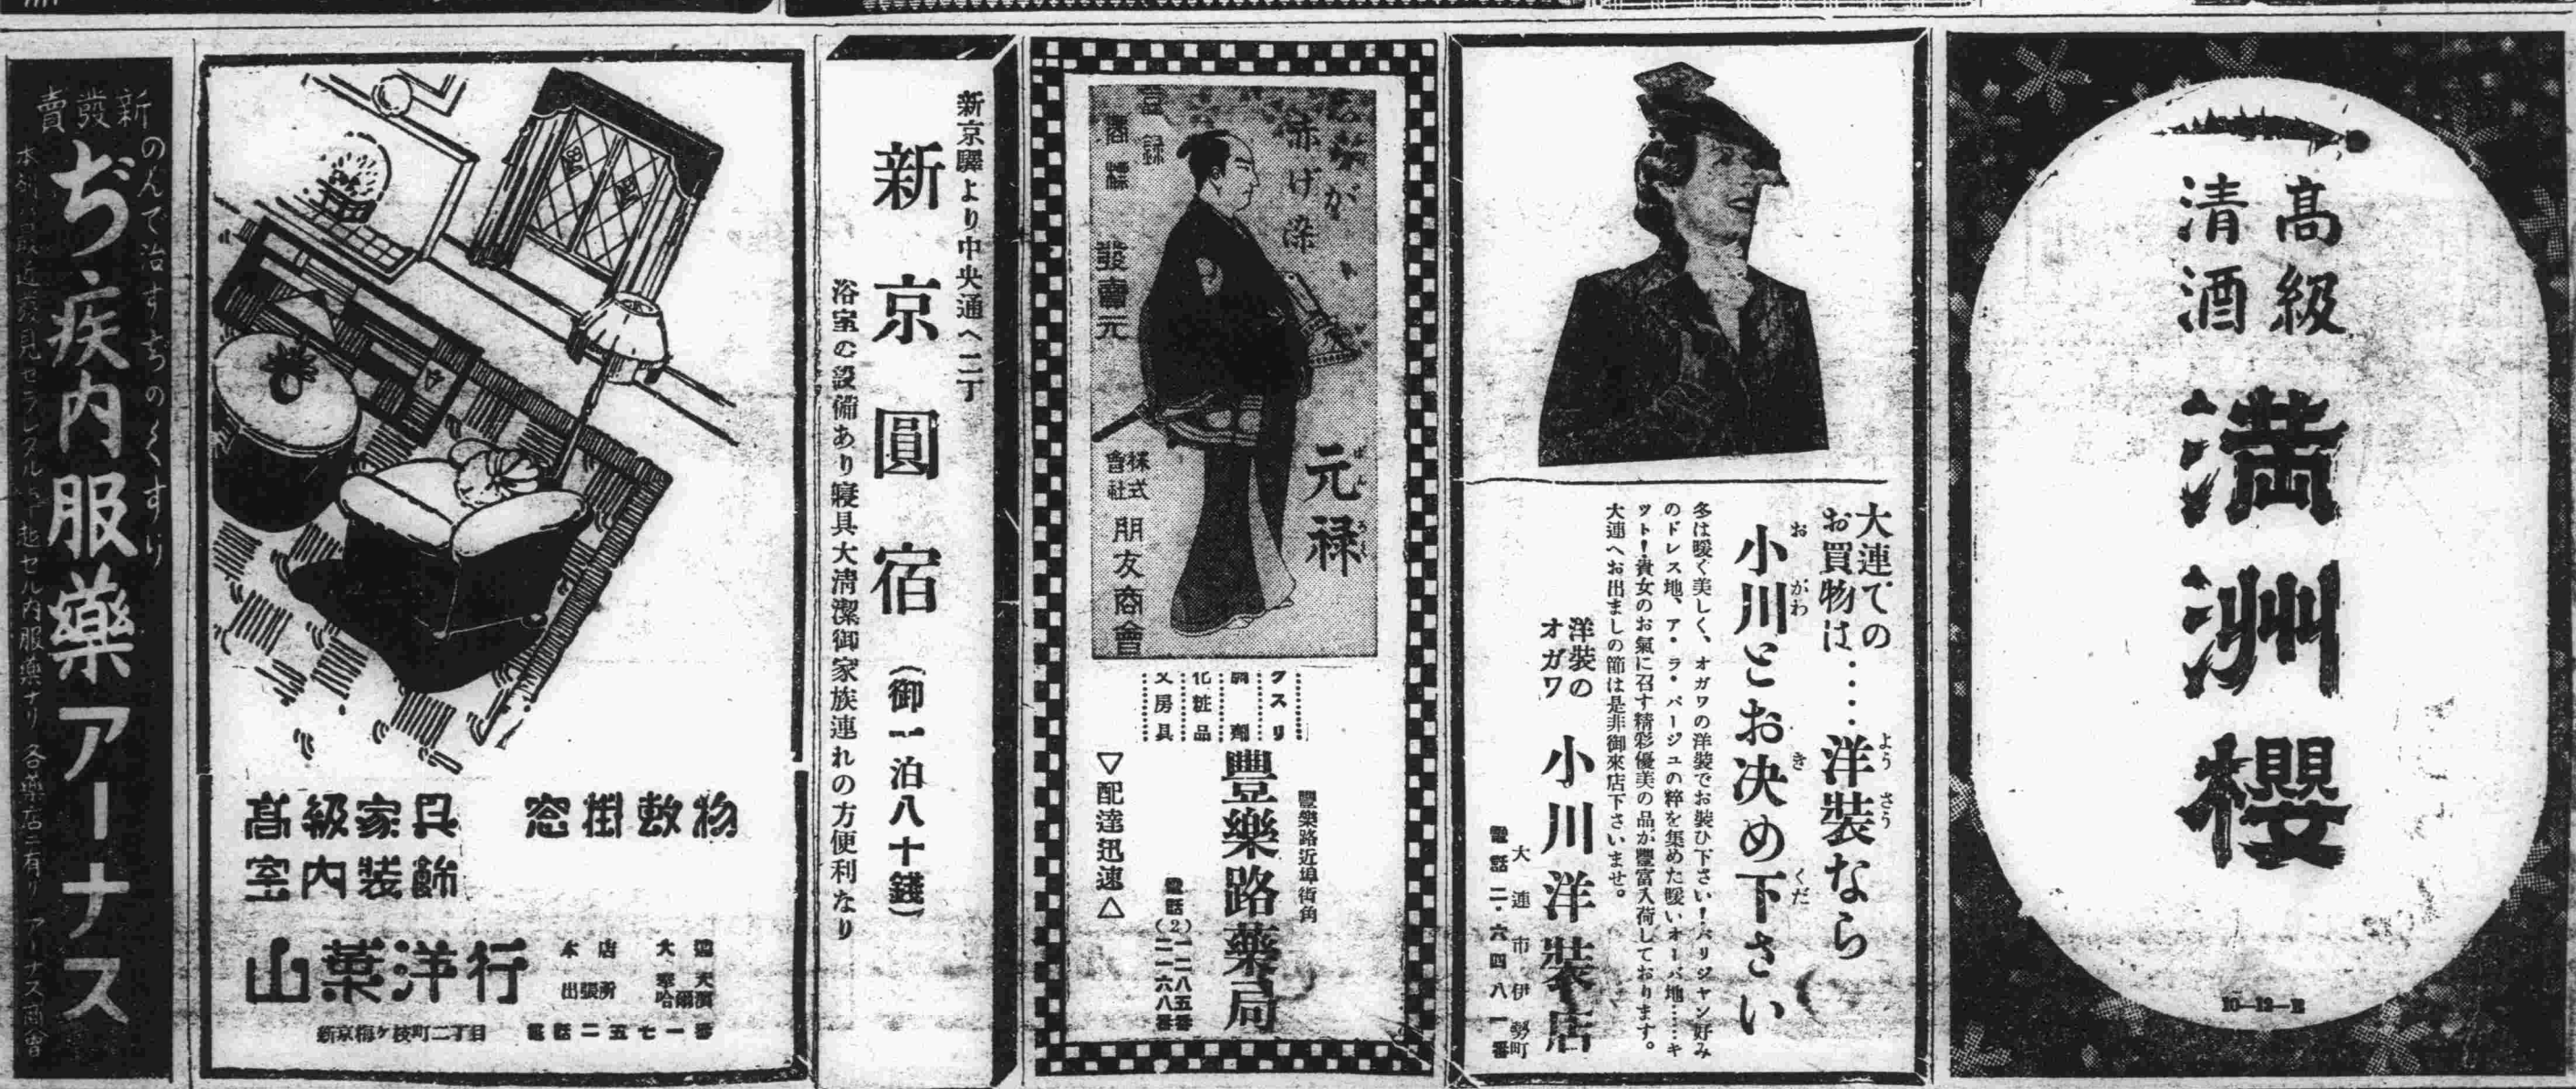 高級
清酒
満洲櫻
10—12—E
大連での
お買物は‥‥洋装なら
ようさう
小川とお決め下さい
おがわ
き
くだ
冬は暖く美しく、オガワの洋装でお装ひ下さい！パリジャン好み
のドレス地、ア・ラ・パージュの粋を集めた暖いオーバ地……キ
ット！貴女のお氣に召す精彩優美の品が豐富入荷しております。
大連へお出ましの節は是非御來店下さいませ。
洋装の
オガワ
小川洋装店
大連市伊勢町
電話二・六四八一番
赤げ染
元禄
げんろく
登録
商標
發賣元
株式
會社
朋友商會
クスリ
調劑
化粧品
文房具
豐樂路近埠街角
豐樂路藥局
電話(2)
二一六八番
▽配達迅速△
新京驛より中央通へ二丁
新京圓宿
(御一泊八十錢)
浴室の設備あり寢具大清潔御家族連れの方便利なり
高級家具
窓掛敷物
室内装飾
山葉洋行
本店
大連
出張所
奉天
哈爾濱
新京梅ケ枝町二丁目
電話二五七一番
新發賣
のんで治すぢのくすり
ぢ疾内服藥アーナス
各藥店ニ有リ
アーナス商會